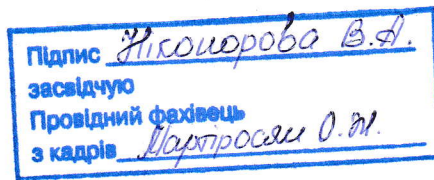 Підпис Ніконорова В.А.
засвідчую
Провідний фахівець
з кадрів Мартіросян О.Ж.